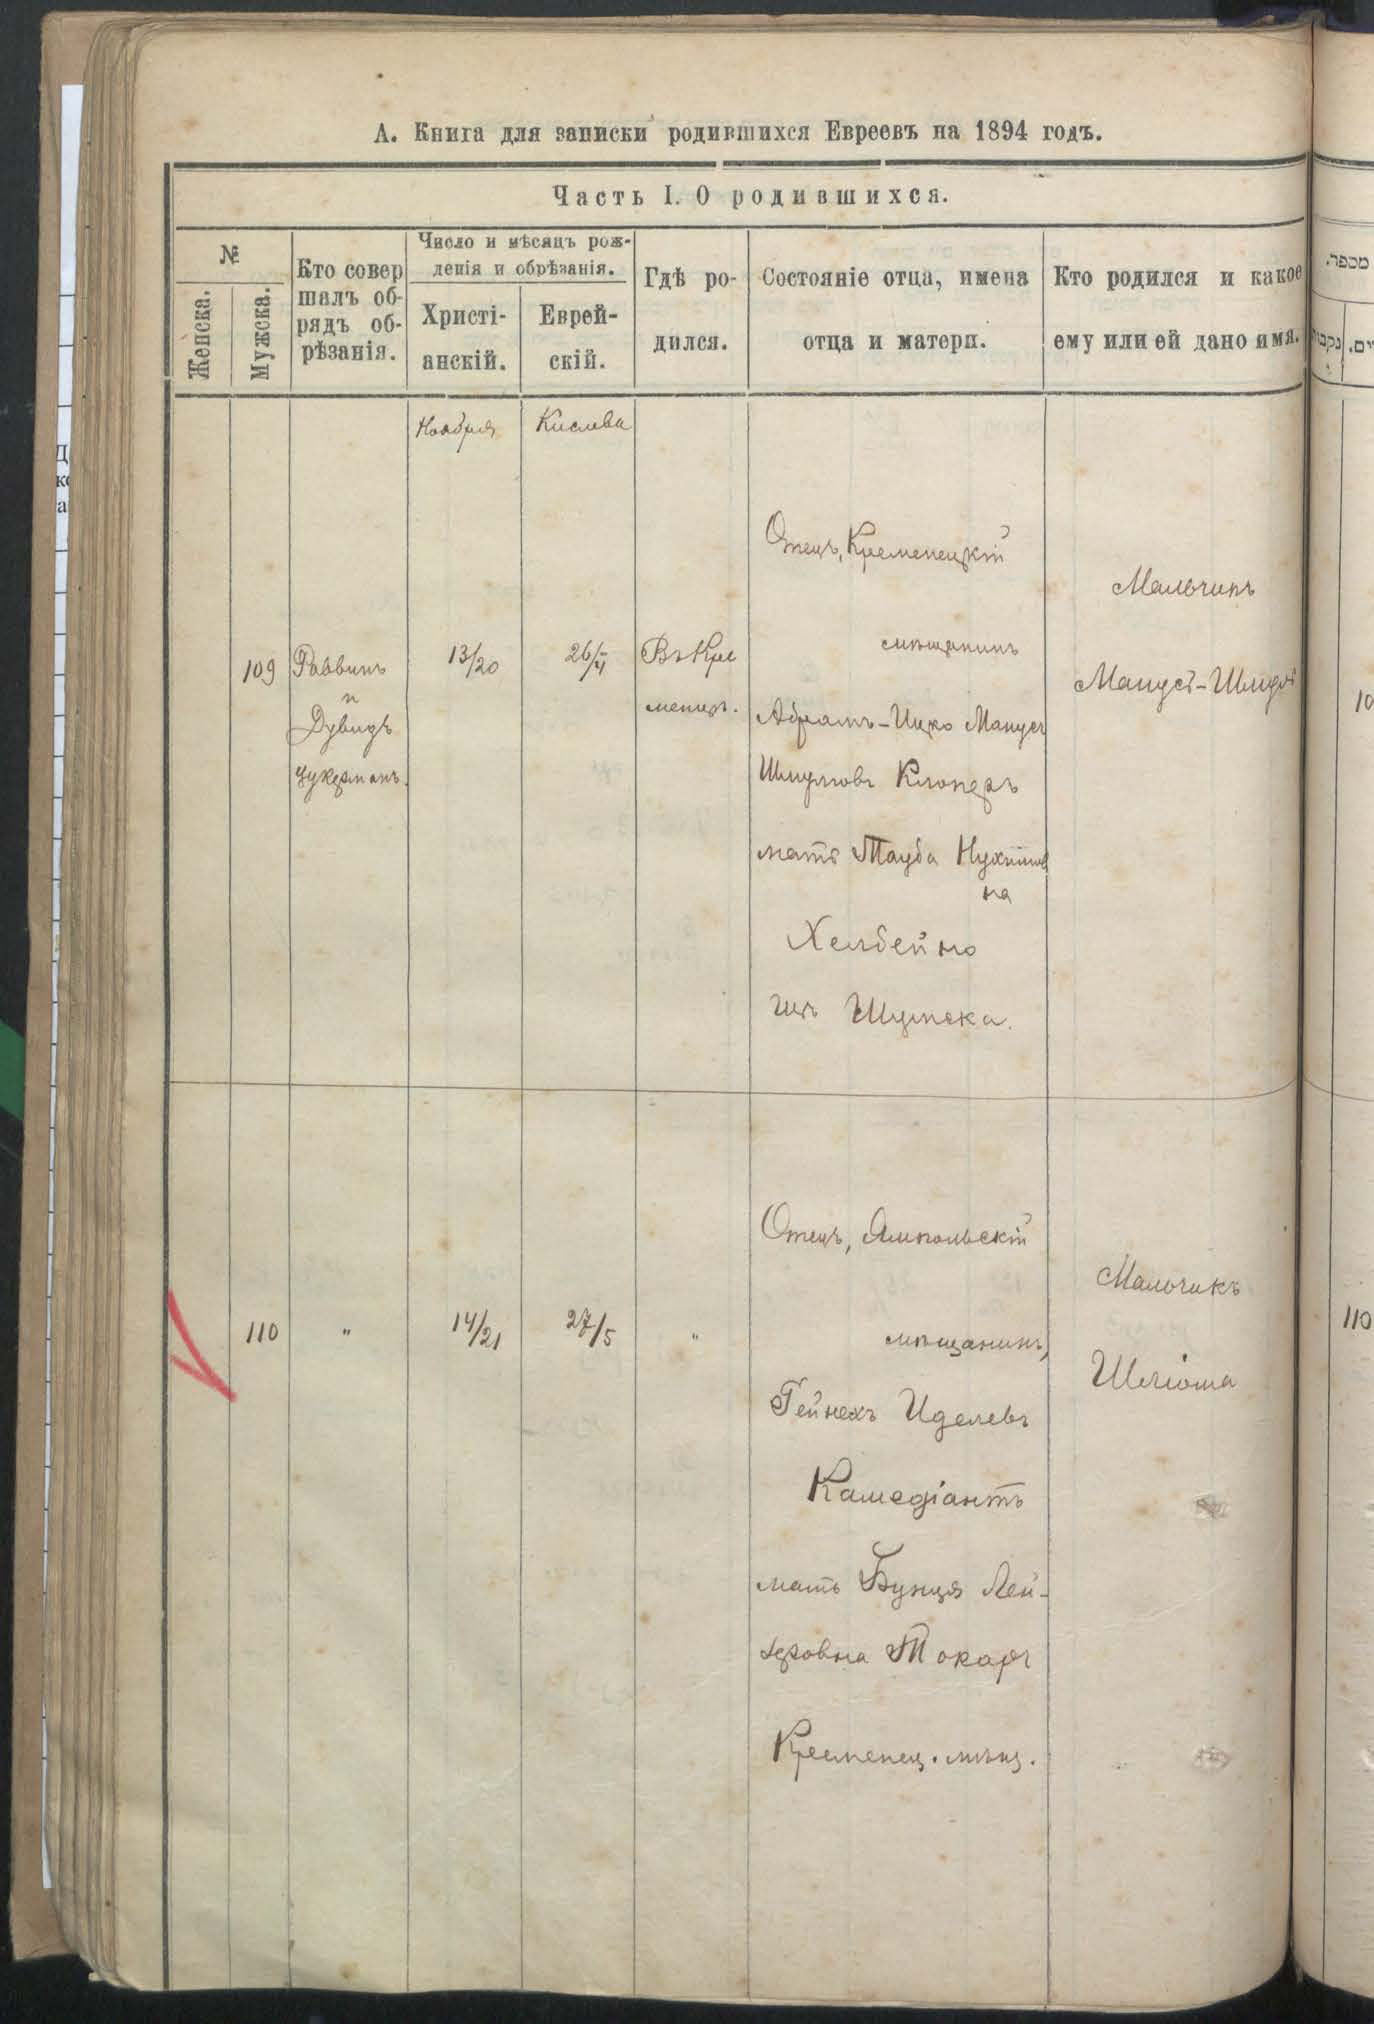 А. Книга для записки родившихся Евреевъ на 1894 годъ.
Часть I. О родившихся.
№
Женска.
Мужска.
Кто совер
шалъ об-
рядъ об-
рѣзанія.
Число и мѣсяцъ рож-
денія и обрѣзанія.
Христі-
анскій.
Еврей-
скій.
Гдѣ ро-
дился.
Состояніе отца, имена
отца и матери.
Кто родился и какое
ему или ей дано имя.
Ноября
Кислева
109
Раввинъ
и
Дувидъ
Цукерманъ.
13/20
26/4
Въ Кре
менцѣ.
Отецъ, Кременецкій
мѣщанинъ
Абрамъ-Ицко Манусъ
Шмулевъ Клоперъ
мать Тауба Нухимов
на
Хелбейно
изъ Шумска.
Мальчикъ
Манусъ-Шмуль
110
"
14/21
27/5
"
Отецъ, Ямпольскій
мѣщанинъ,
Гейнехъ Иделевъ
Камедіантъ
мать Бунця Лей-
зеровна Токарь
Кременец. мѣщ.
Мальчикъ
Шліома
מספר.
נקבות
ים.
10
110